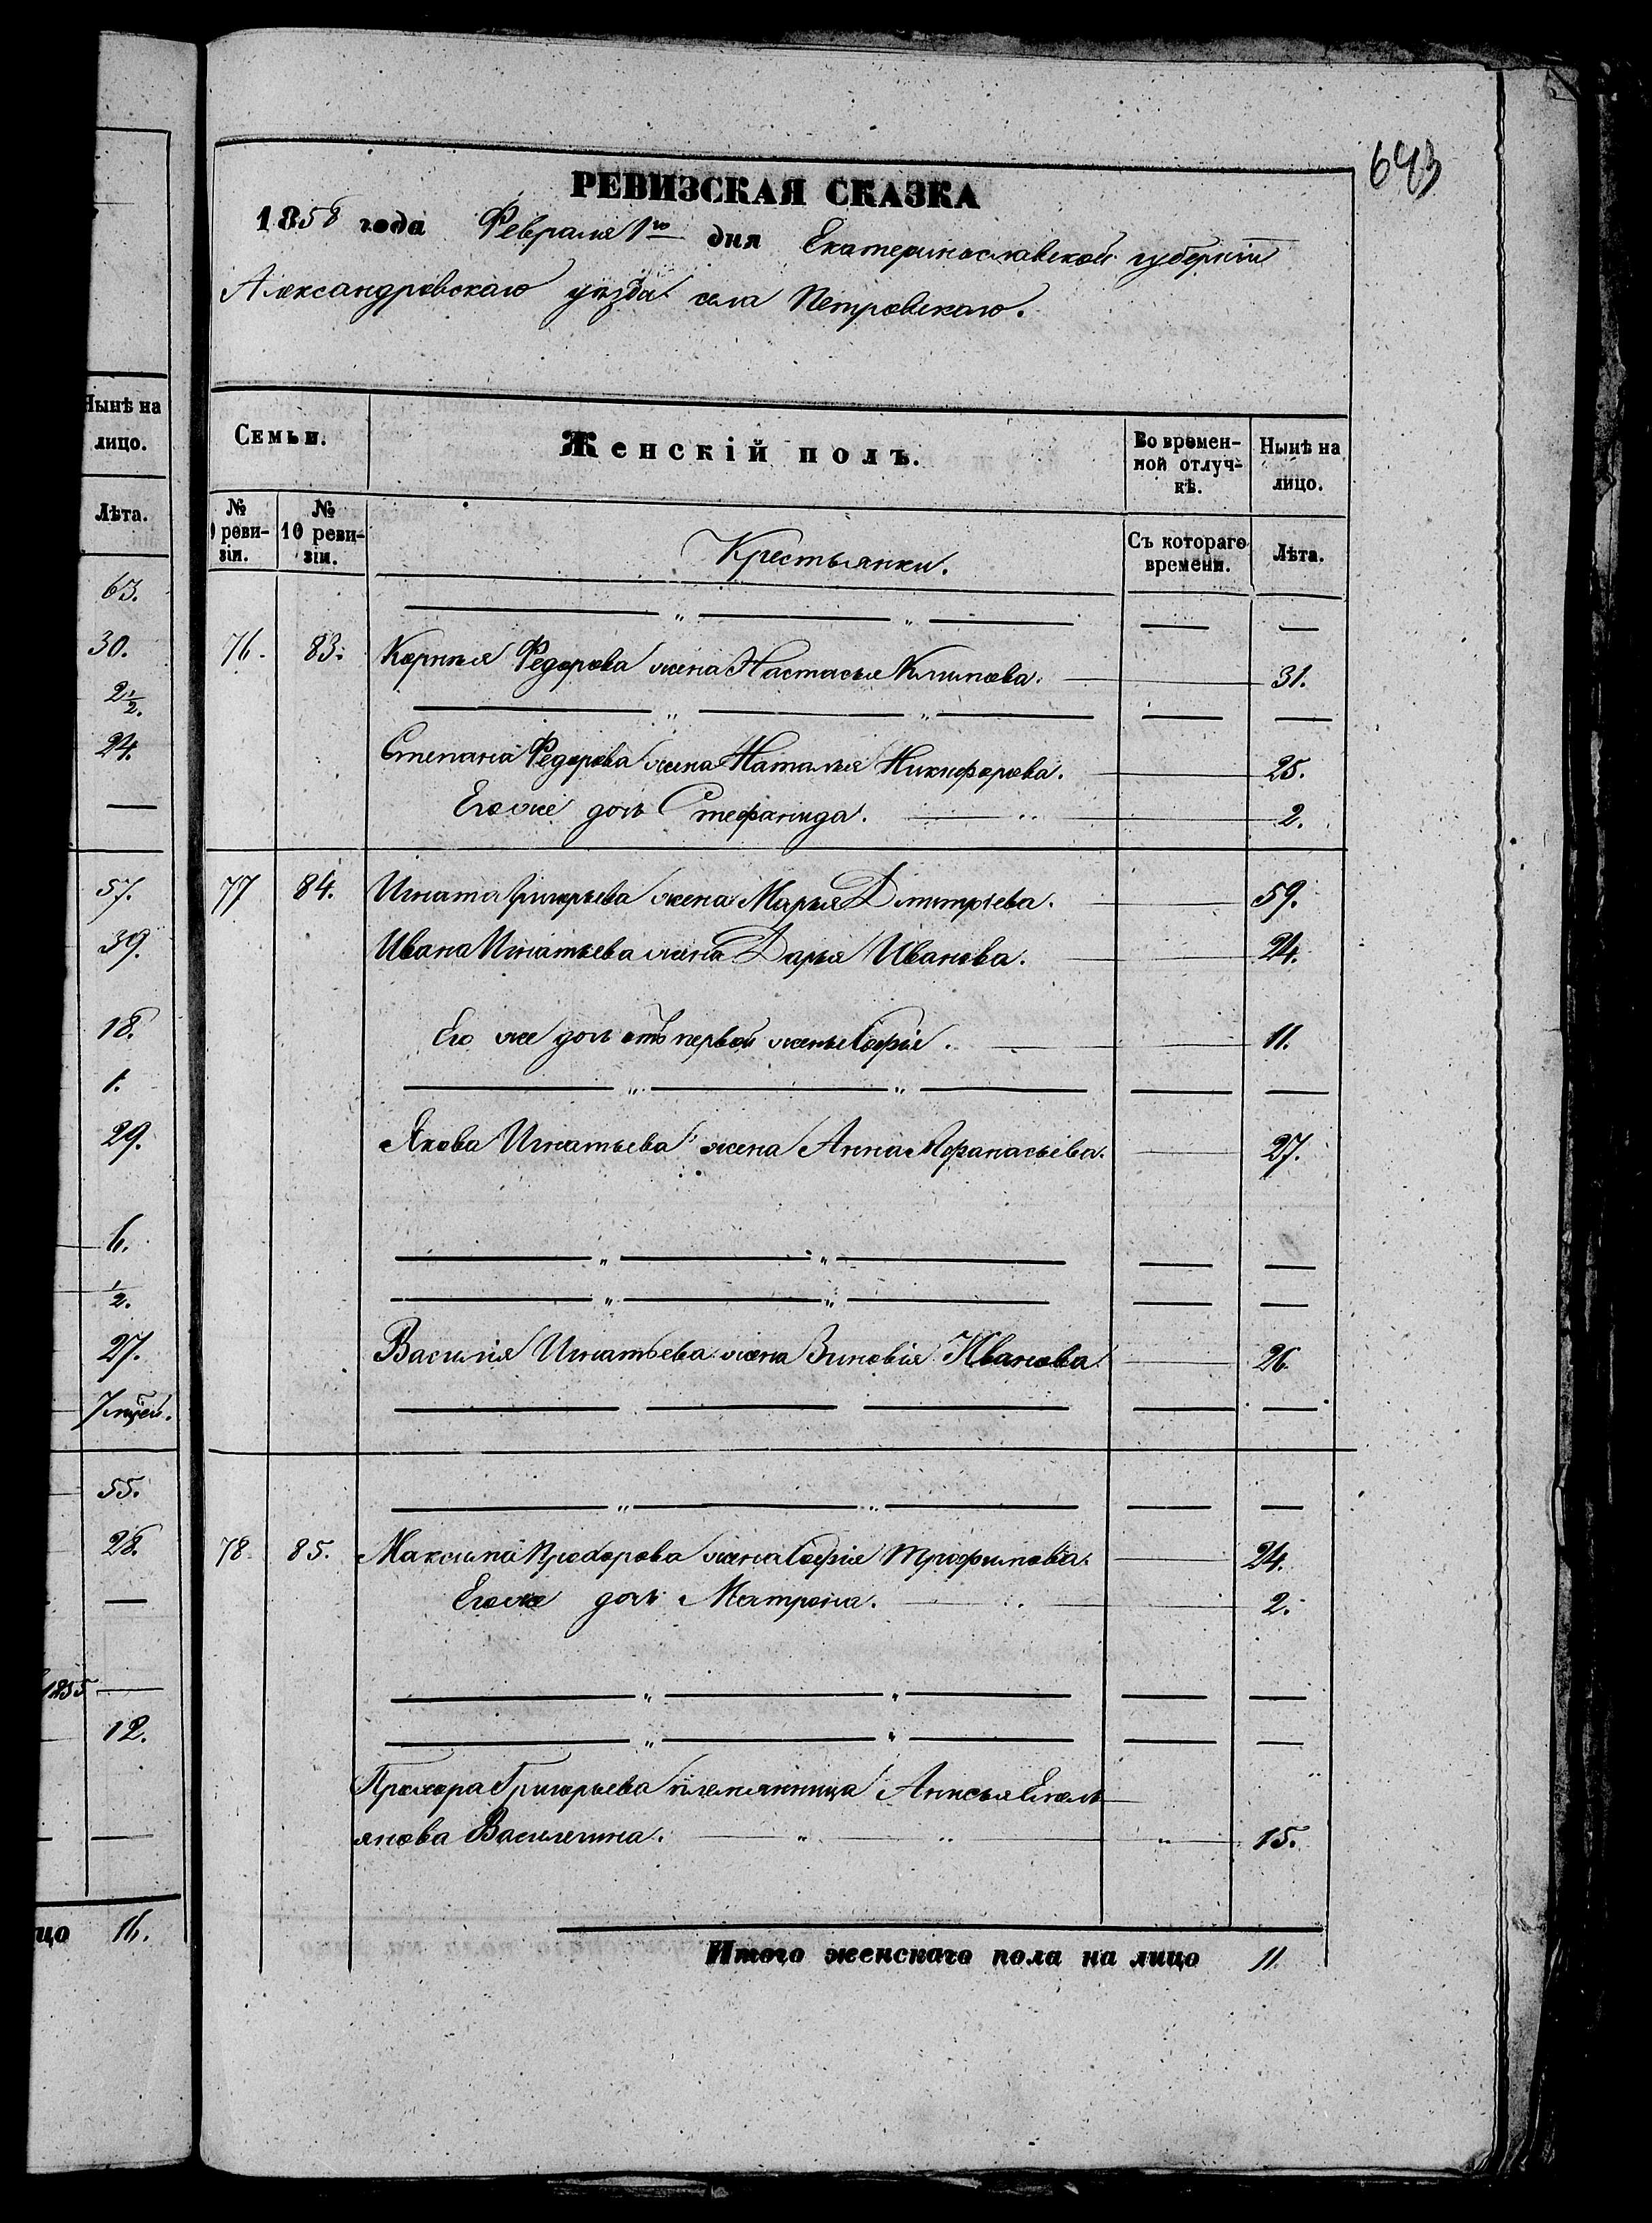 643
РЕВИЗСКАЯ СКАЗКА
1858 года Февраля 1го дня Екатеринославской губерніи
Александровскаго уѣзда села Петровскаго.
Нынѣ на
лицо.
Лѣта.
63.
30.
2 1/2.
24.
57.
39.
18.
1.
29.
6.
1/2.
27.
7 мцей.
55.
28.
1855
12.
цо 16.
Семьи.
Женскій полъ.
Во времен-
ной отлуч-
кѣ.
Нынѣ на
лицо.
№
реви-
зіи.
№
10 реви-
зіи.
Крестьянки.
Съ котораго
времени.
Лѣта.
76. 83. Корнѣя Федорова жена Настасья Климова. 31.
Степана Федорова жена Наталья Никифорова. 25.
Его же дочь Стефанида. 2.
77 84. Игната Григорьева жена Марья Дмитріева. 59.
Ивана Игнатьева жена Дарья Иванова. 24.
Его же дочь отъ первой жены Софія. 11.
Якова Игнатьева жена Анна Афанасьева. 27.
Василія Игнатьева жена Зиновія Иванова. 26.
78. 85. Максима Прохорова жена Софія Трофимова. 24.
Его же дочь Матрона. 2.
Прохора Григорьева племянница Анисья Емель
янова Василегина. 15.
Итого женскаго пола на лицо 11.